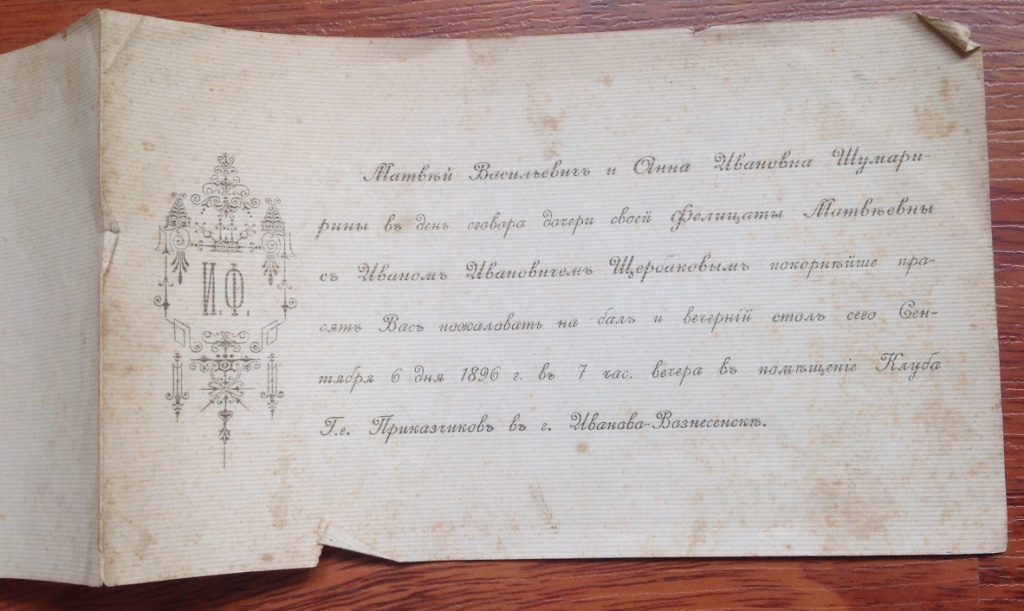 И.Ф.
Матвѣй Васильевичъ и Анна Ивановна Шумари-
рины въ день сговора дочери своей Фелицаты Матвѣевны
съ Иваномъ Ивановичемъ Щербаковымъ покорнѣйше про-
сятъ Васъ пожаловать на балъ и вечерній столъ сего Сен-
тября 6 дня 1896 г. въ 7 час. вечера въ помѣщеніе Клуба
Г.г. Приказчиковъ въ г. Иванова-Вознесенскѣ.